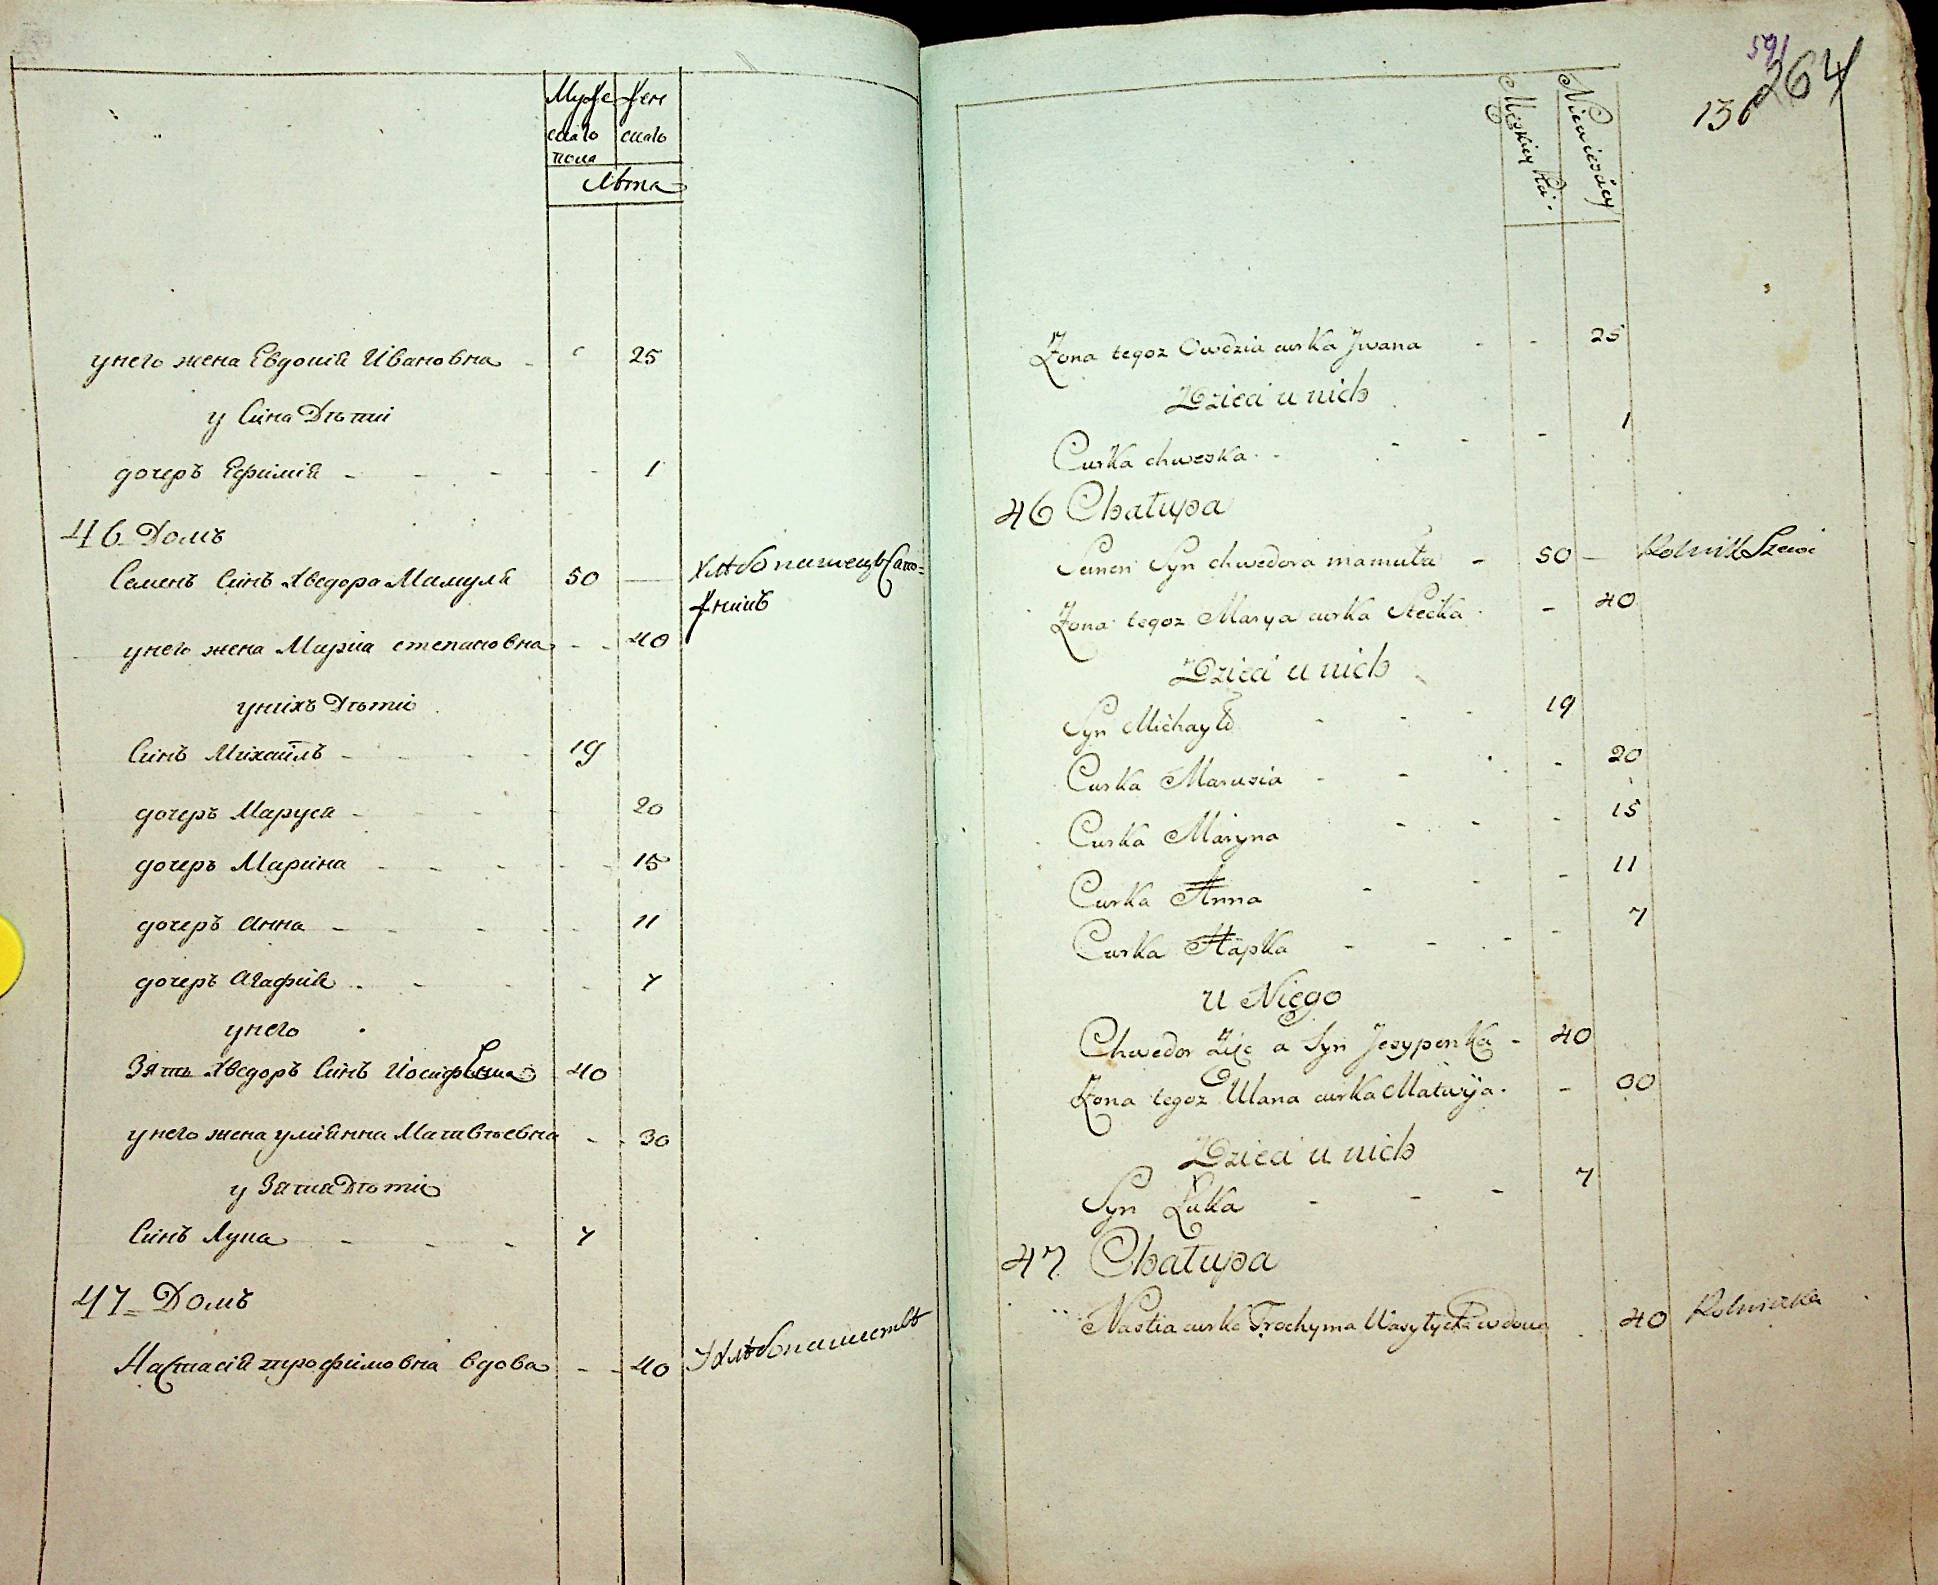 Мужескаго пола
Женскаго
Лѣта
унего жена Евдокія Ивановна - - 25
у Сина Дѣти
дочеръ Ефимія - - - - - 1
46 Домъ
Семенъ Синъ Хведора Мамуля 50 — Хлѣбопашецъ Сапо=
жникъ
унего жена Марія степановна - - 40
унихъ Дѣти
Синъ Михаилъ - - - - 19
дочеръ Маруся - - - - 20
дочеръ Марина - - - - - 15
дочеръ Анна - - - - - 11
дочеръ Агафія - - - - 7
унего
Зять Хведоръ Синъ Иосифенка 40
унего жена улиянна Матвѣевна - - 30
у Зятя Дѣти
Синъ Лука - - - 7
47 Домъ
Настасія трофимовна вдова - - 40 Хлѣбопашеств
591
264
136
Męzkiey
Niewiesciey
Zona tegoz Owdzia curka Jwana - - 25
Dzieci u nich
Curka chweska - - - - 1
46 Chałupa
Semen Syn chwedora mamuła - 50 — Rolnik Szewc
Zona tegoz Marya curka Stećka - - 40
Dzieci u nich
Syn Michayło - - - 19
Curka Marusia - - - - 20
Curka Maryna - - - 15
Curka Anna - - - 11
Curka Hapka - - - - 7
u Niego
Chwedor Zięc a Syn Jesypenka - 40
Zona tegoz Ulana curka Matwija - - 30
Dzieci u nich
Syn Luka - - - 7
47 Chałupa
Nastia curka Trochyma Wasylycha wdowa - 40 Rolniczka